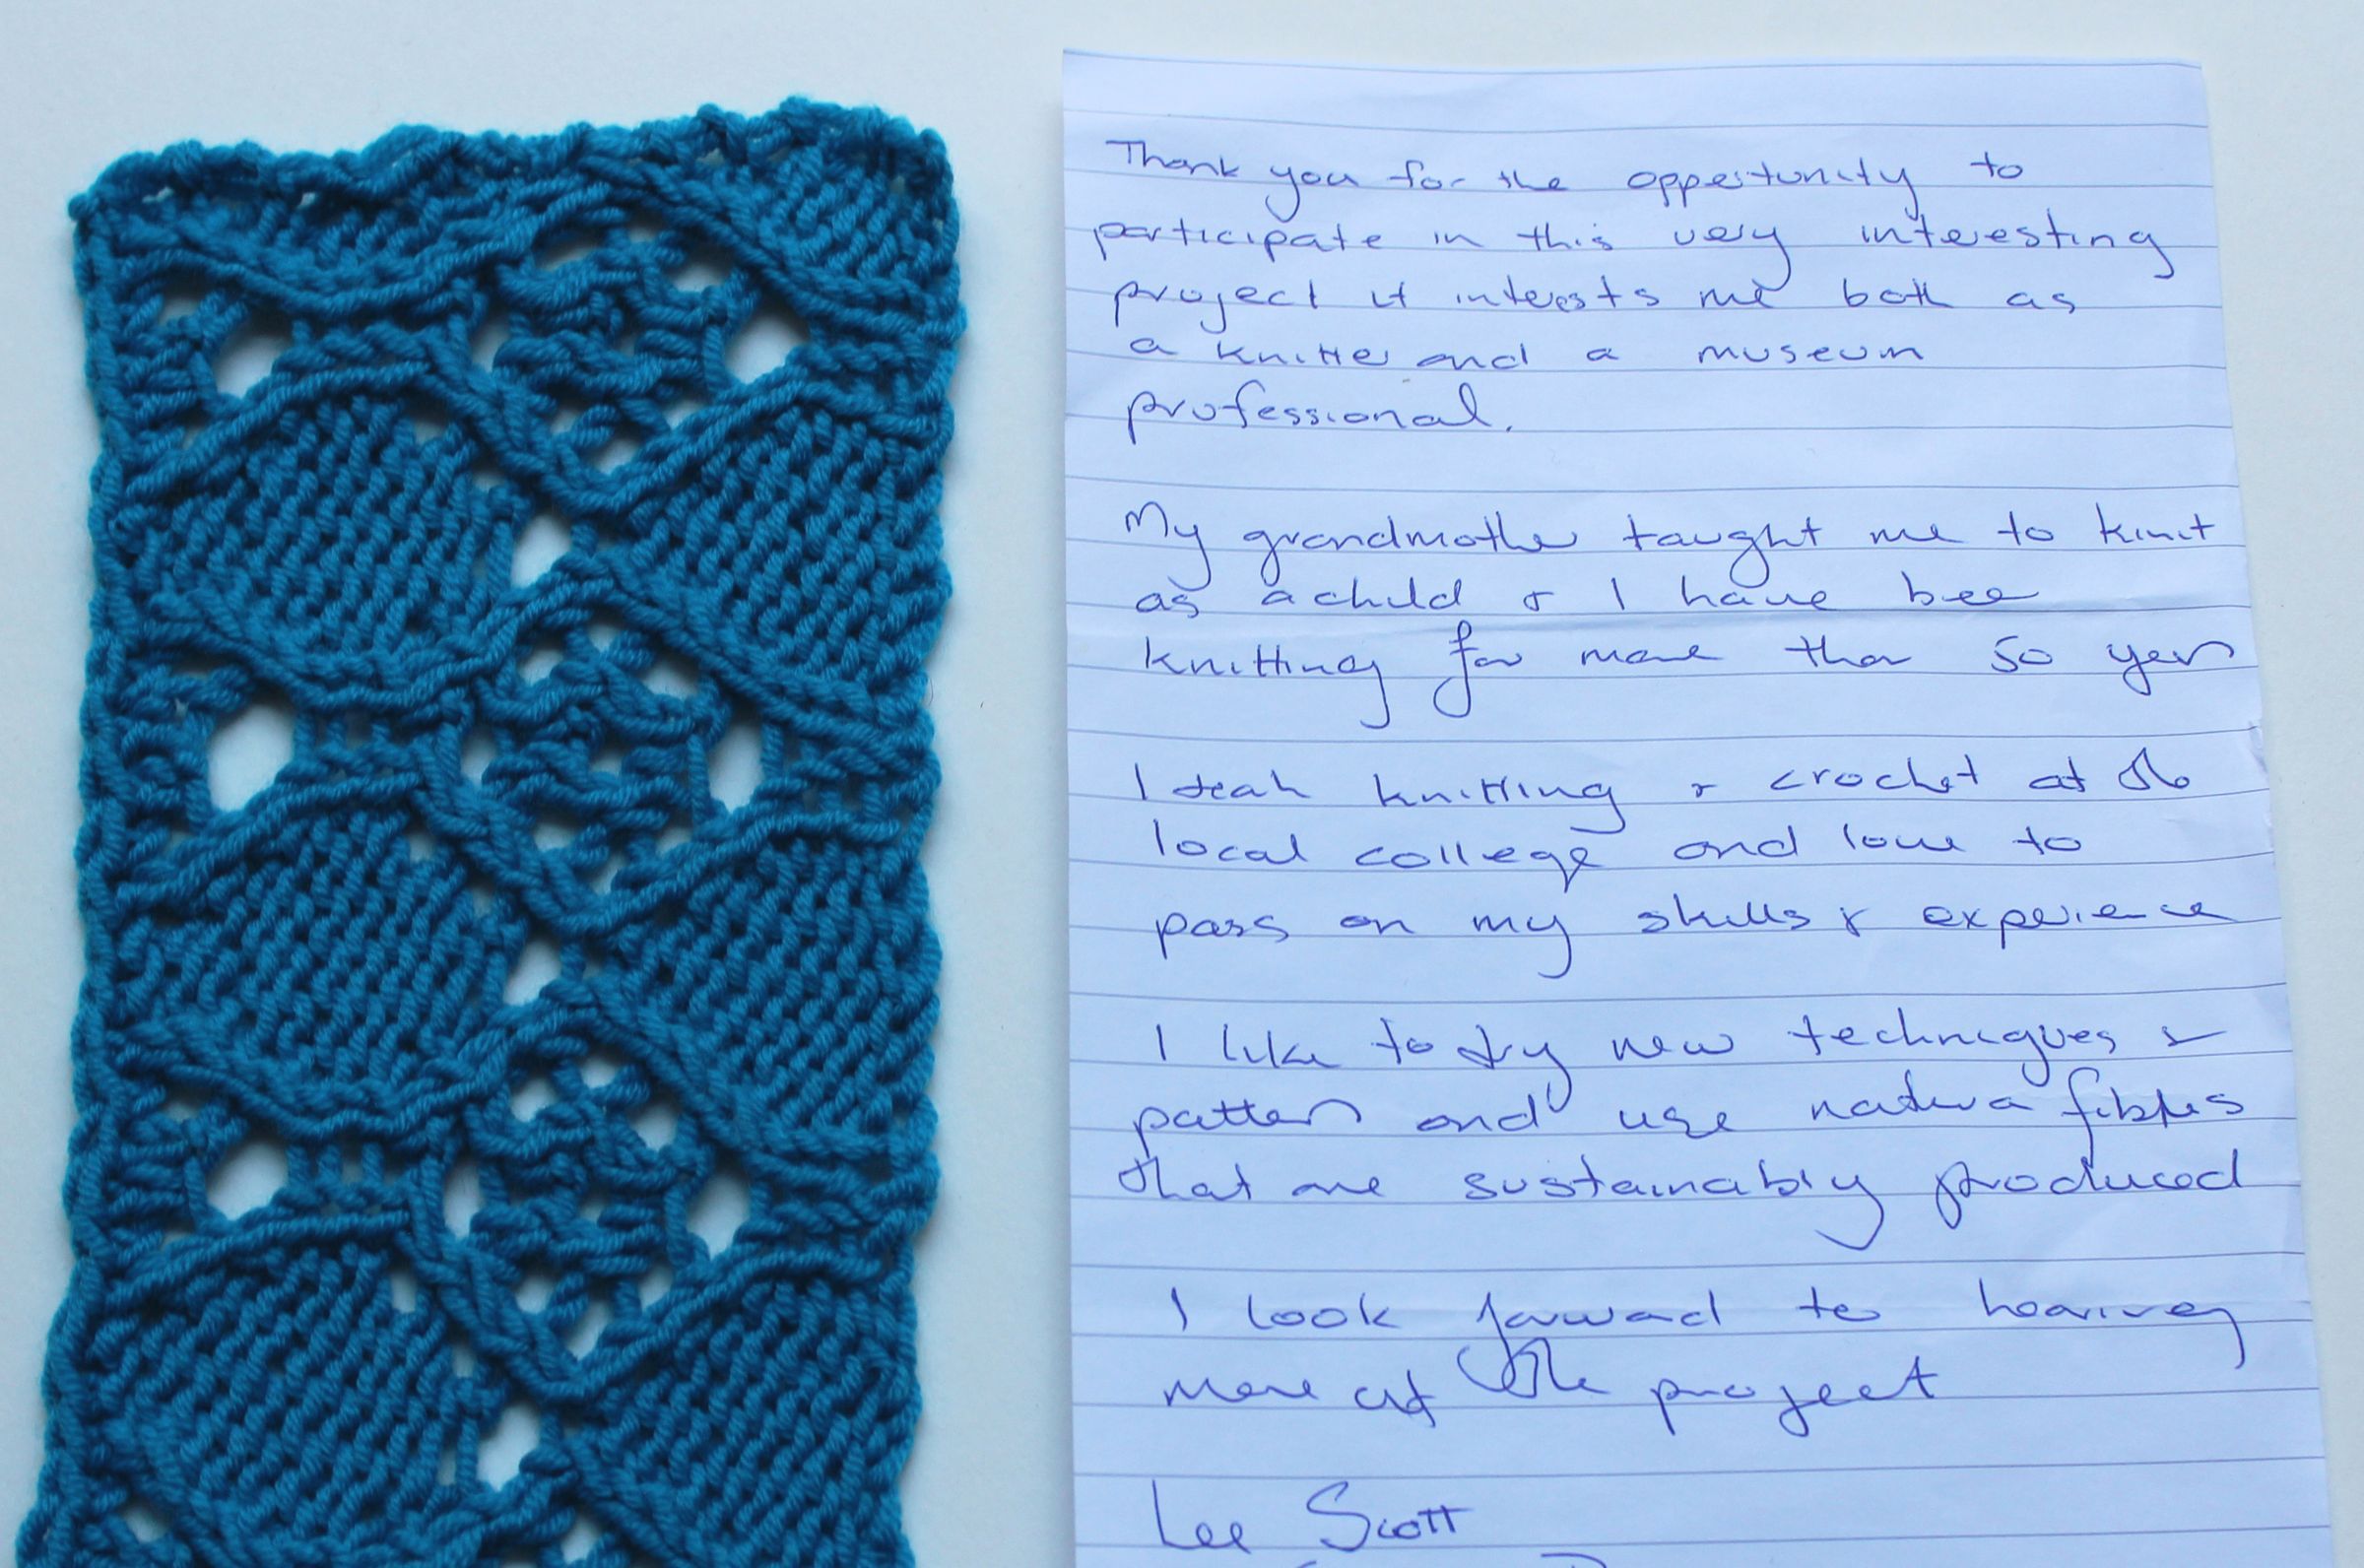 Thank you for the opportunity to
participate in this very interesting
project it interests me both as
a knitter and a museum
professional.
My grandmother taught me to knit
as a child & I have been
knitting for more than 50 years
I teach knitting & crochet at the
local college and love to
pass on my skills & experience
I like to try new techniques &
patterns and use natural fibres
that are sustainably produced
I look forward to hearing
more of the project
Lee Scott